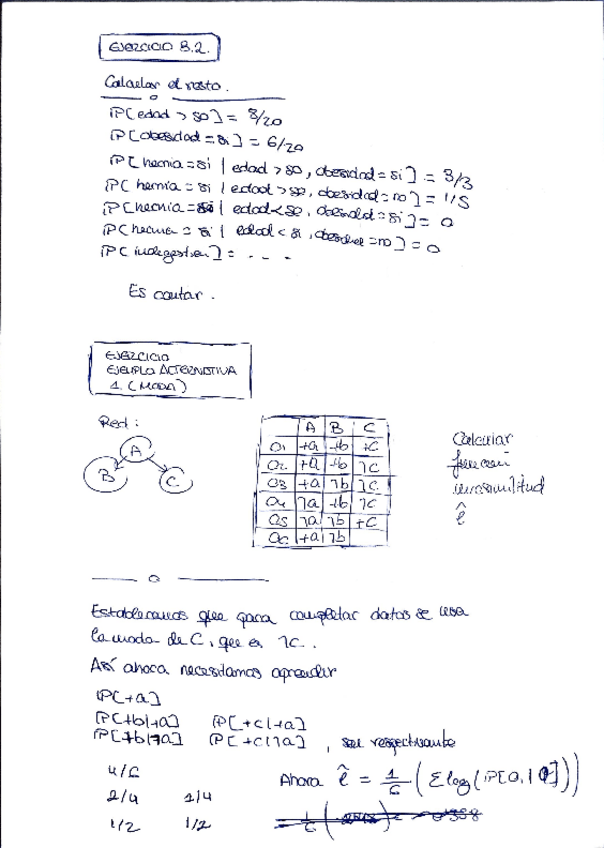 EJERCICIO 3.2.
Calcular el resto.
P[edad > 50] = 8/20
P[obesidad = si] = 6/20
P[hernia = si | edad > 50, obesidad = si] = 3/3
P[hernia = si | edad > 50, obesidad = no] = 1/5
P[hernia = si | edad < 50, obesidad = si] = 0
P[hernia = si | edad < 51, obesidad = no] = 0
P[indigestion] = . . .
Es contar.
EJERCICIO
EJEMPLO ALTERNATIVA
1. (MODA)
Red:
A
B C
A B C
O1 +a +b +c
O2 +a +b ¬c
O3 +a ¬b ¬c
O4 ¬a +b ¬c
O5 ¬a ¬b +c
O6 +a ¬b
Calcular
función
verosimilitud
ê
Establecemos que para completar datos se usa
la moda de C, que es ¬c.
Así ahora necesitamos aprender
P[+a]
P[+b|+a] P[+c|+a]
P[+b|¬a] P[+c|¬a], son respectivamente
4/6
2/4 1/4
1/2 1/2
Ahora ê = 1/6 (Σ log(P[O, | θ]))